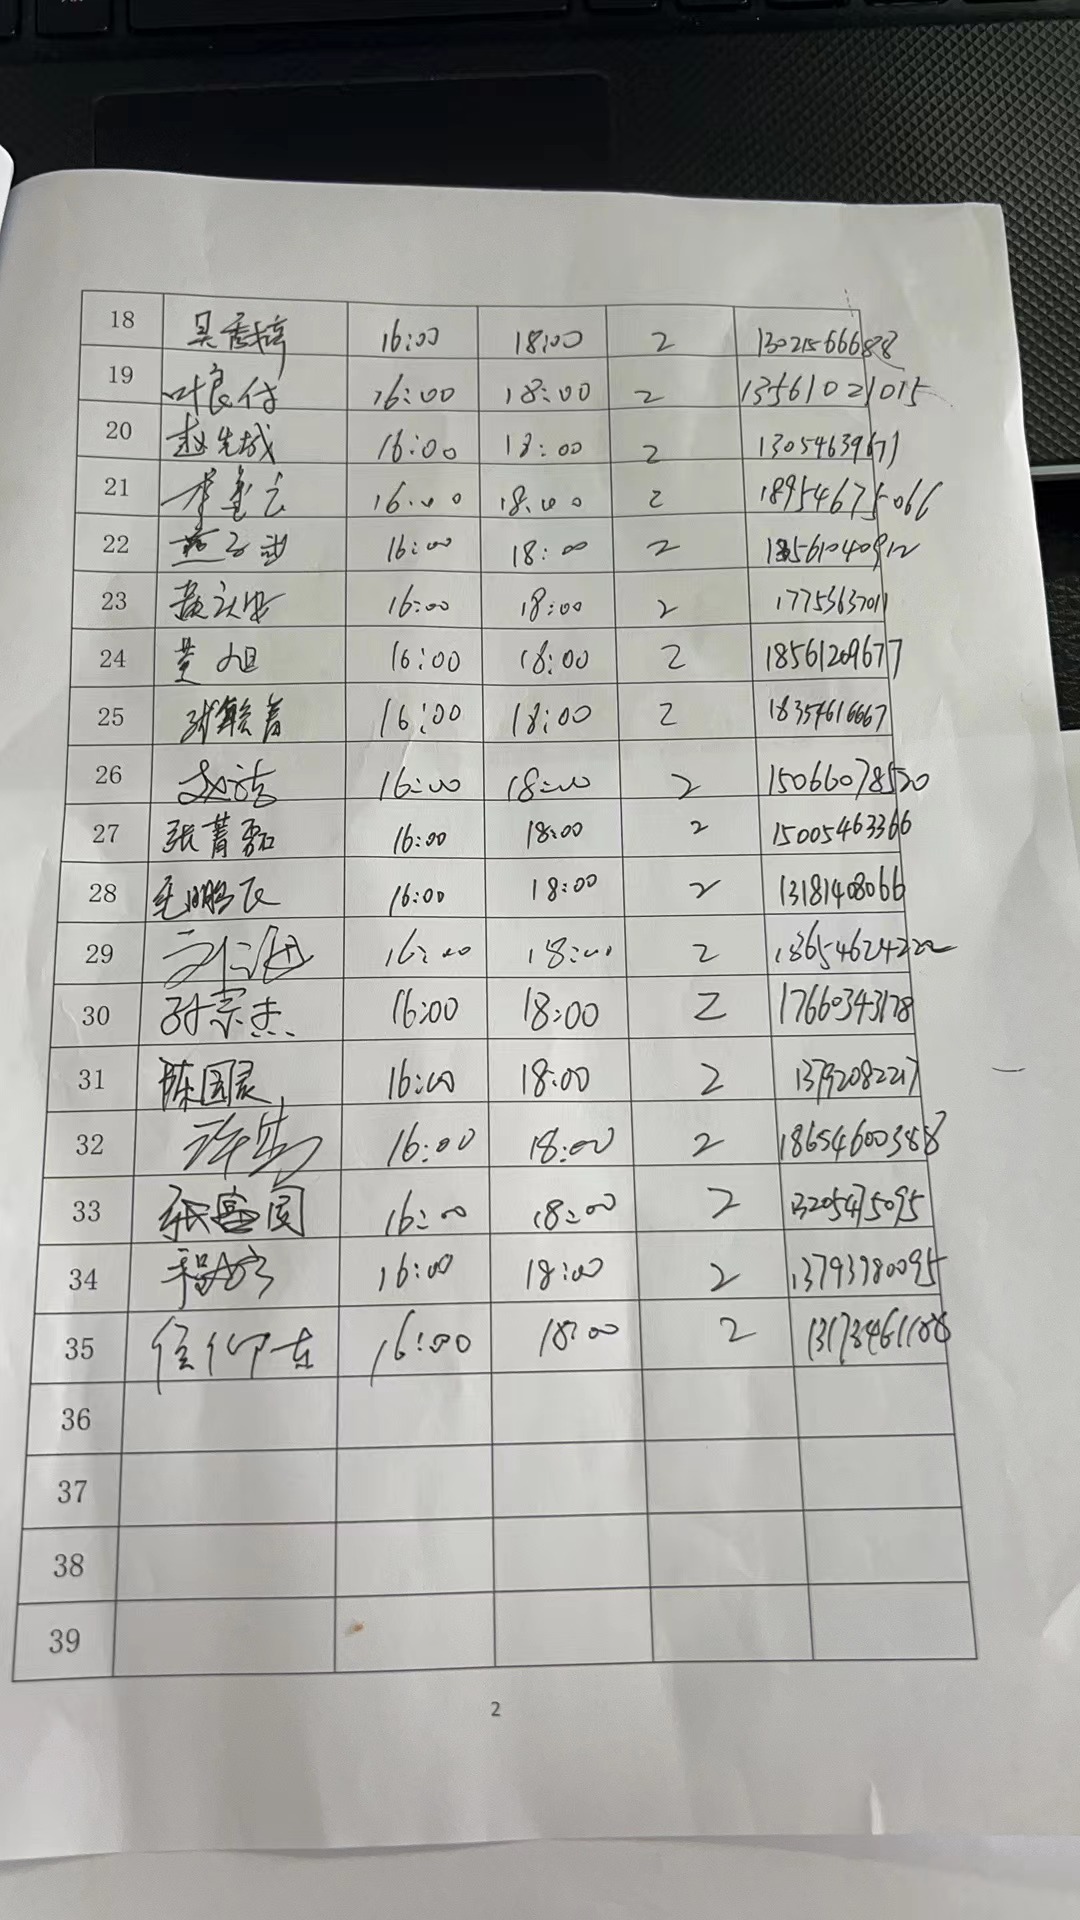 18 16:00 18:00 2 13021566688
19 叶良付 16:00 18:00 2 13561021015
20 赵先城 16:00 18:00 2 13054639671
21 16:00 18:00 2 18954675066
22 16:00 18:00 2 18561040912
23 16:00 18:00 2 17753637011
24 黄旭 16:00 18:00 2 18561209677
25 16:00 18:00 2 18354616667
26 16:00 18:00 2 15066078520
27 张菁磊 16:00 18:00 2 15005463366
28 毛鹏飞 16:00 18:00 2 13181408066
29 16:00 18:00 2 18654624222
30 孙宗杰 16:00 18:00 2 17660343178
31 陈国灵 16:00 18:00 2 13792082217
32 16:00 18:00 2 18654600388
33 张富圆 16:00 18:00 2 13205475095
34 16:00 18:00 2 13793780095
35 16:00 18:00 2
36
37
38
39
2